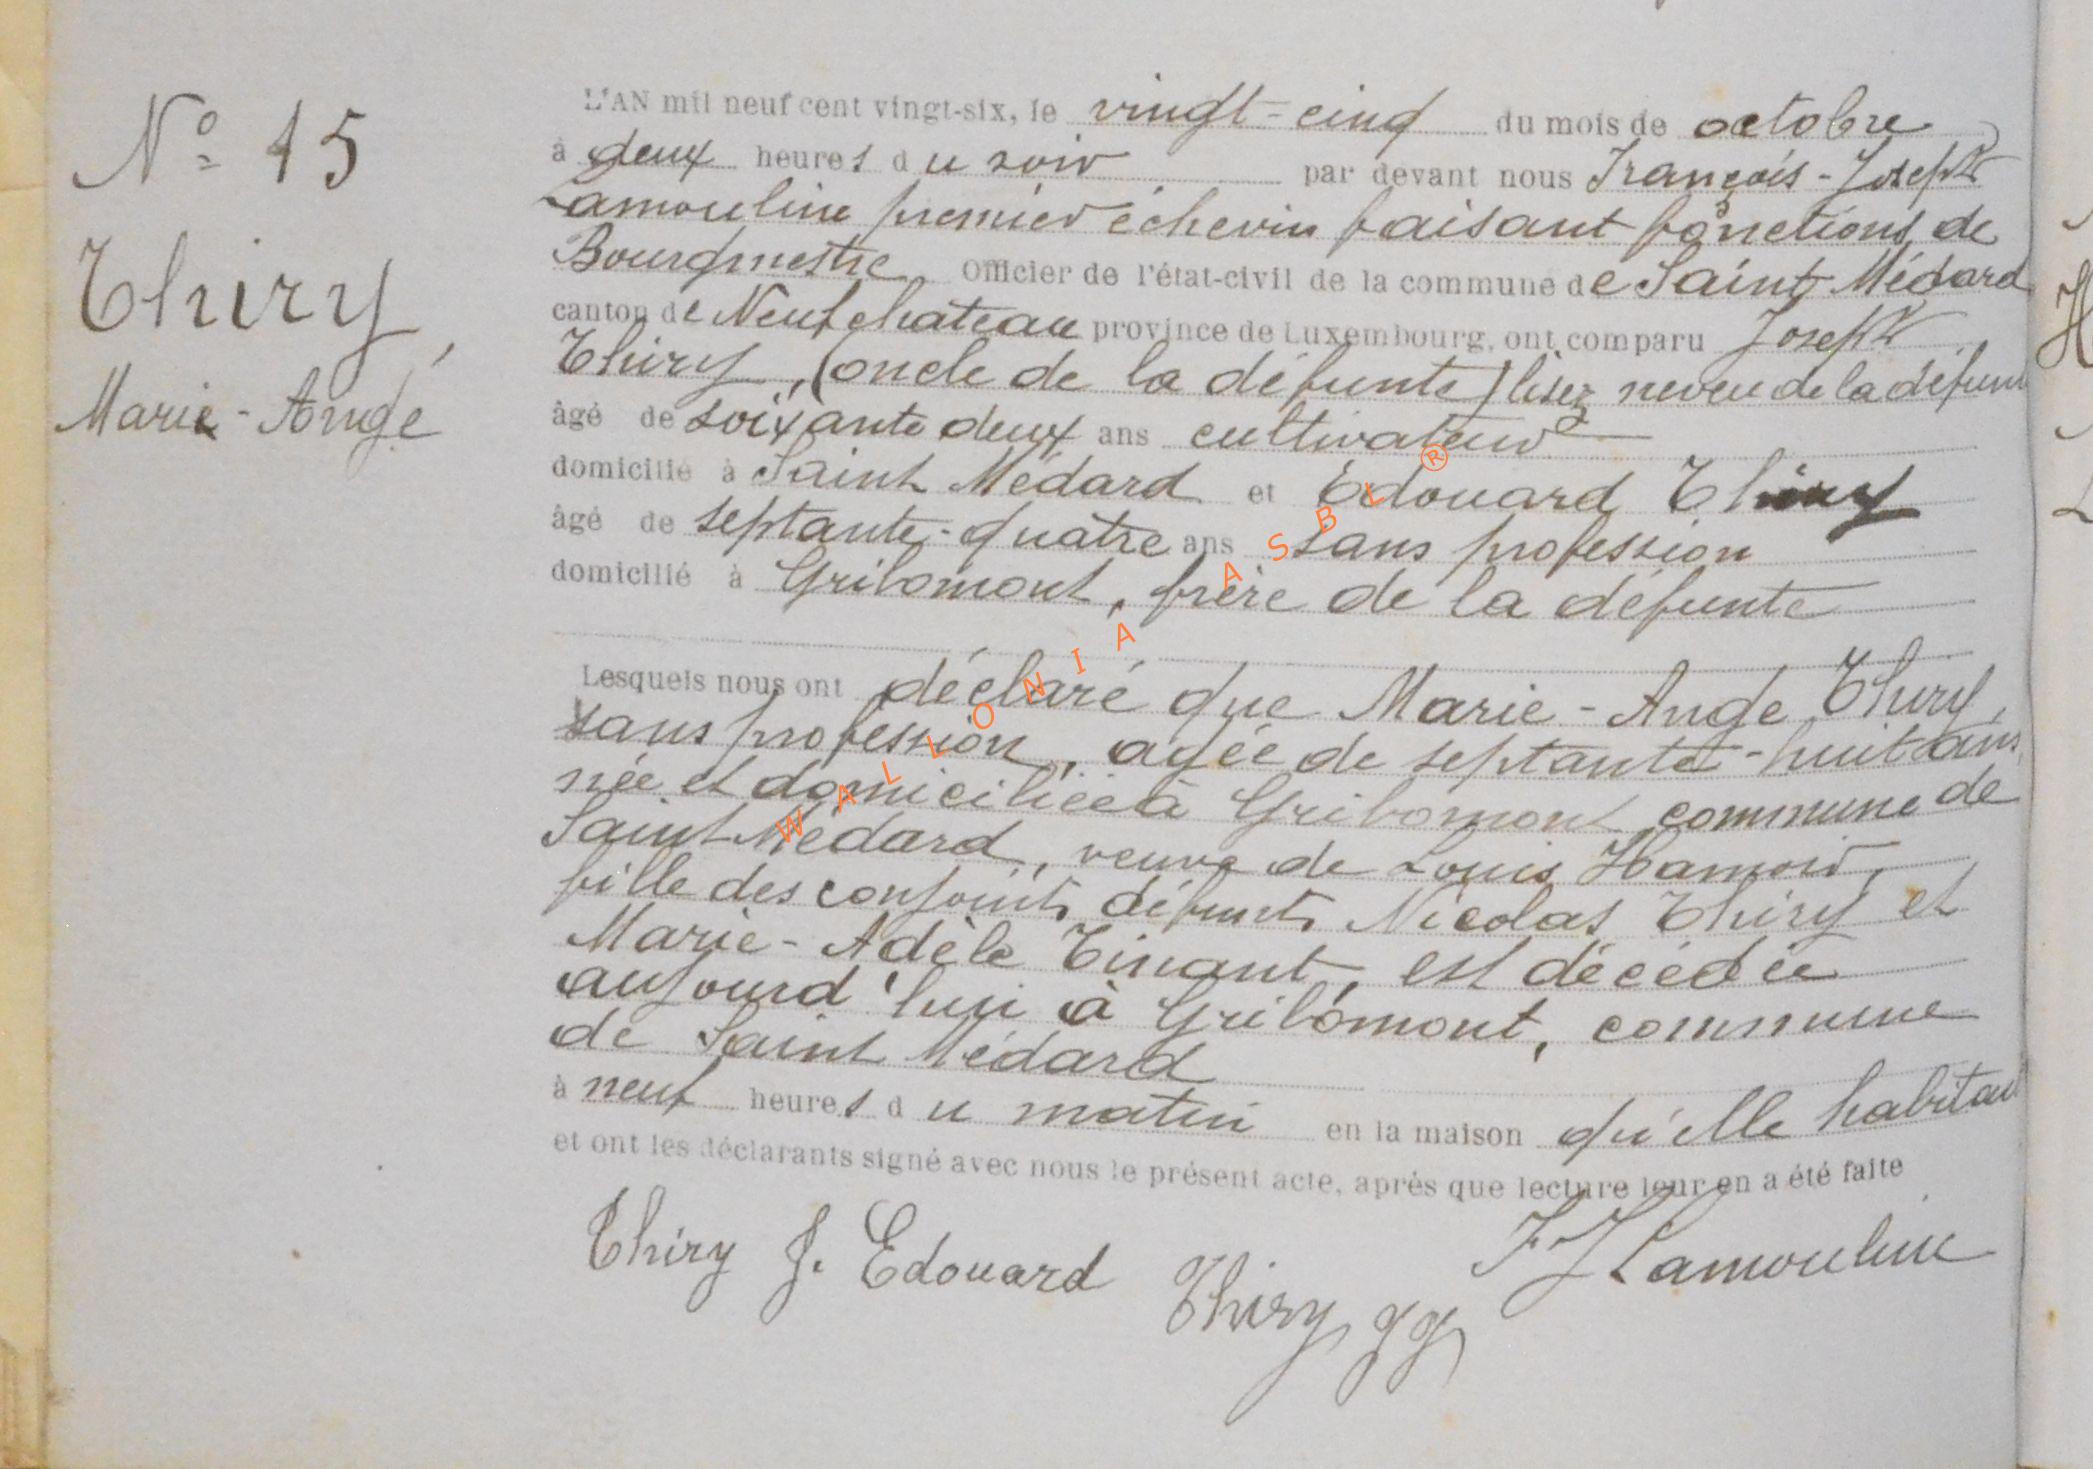 Nº 15
Thiry,
Marie-Ange
L'AN mil neuf cent vingt-six, le vingt-cinq du mois de octobre
à deux heures du soir par devant nous François-Joseph
Lamouline premier échevin faisant fonctions de
Bourgmestre, Officier de l'état-civil de la commune de Saint Médard
canton de Neufchateau province de Luxembourg, ont comparu Joseph
Thiry, (oncle de la défunte) lisez neveu de la défunte
âgé de soixante deux ans cultivateur
domicilié à Saint Médard et Edouard Thiry
âgé de septante-quatre ans sans profession
domicilié à Gribomont, frère de la défunte
Lesquels nous ont déclaré que Marie-Ange Thiry,
sans profession, agée de septante-huit ans,
née et domiciliée à Gribomont commune de
Saint Médard, veuve de Louis Hamoir,
fille des conjoints défunts Nicolas Thiry et
Marie-Adèle Tinant, est décédée
aujourd'hui à Gribomont, commune
de Saint Médard
à neuf heures du matin en la maison qu'elle habitait
et ont les déclarants signé avec nous le présent acte, après que lecture leur en a été faite
Thiry J. Edouard Thiry FJ Lamouline
WALLONIA ASBL ®